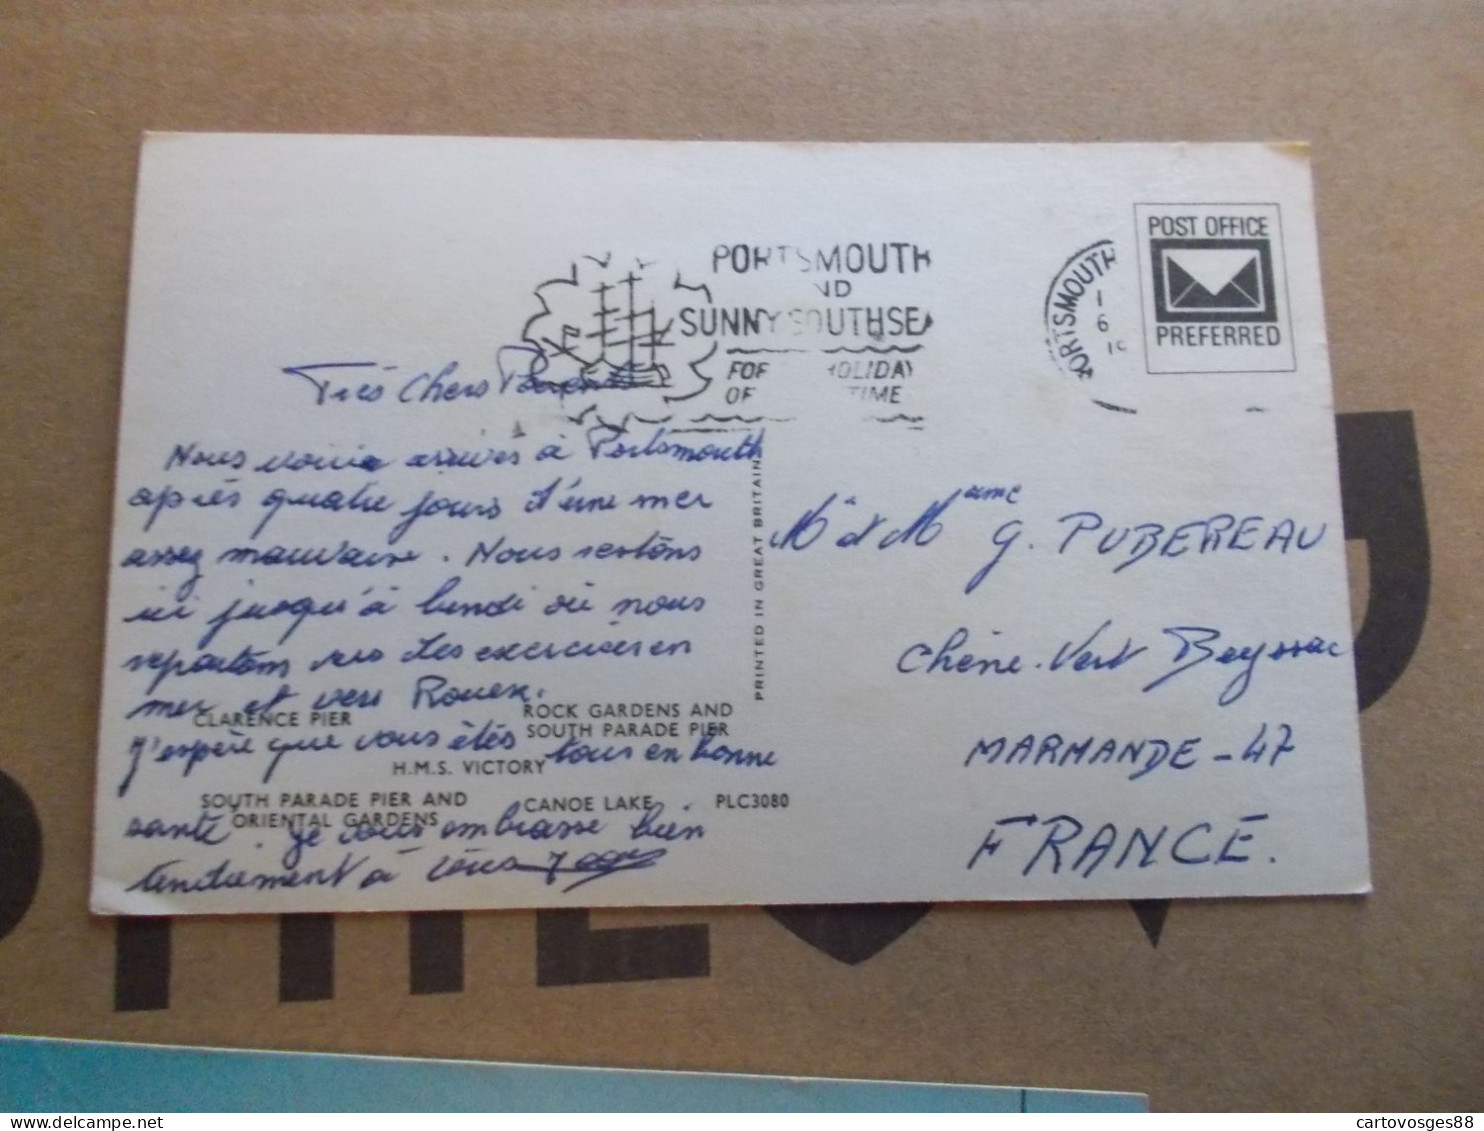 PORTSMOUTH
AND
SUNNY SOUTHSEA
FOR HOLIDAY
OF TIME
PORTSMOUTH
1
6
19
POST OFFICE
PREFERRED
Très Chers Parents
Nous voici arrivés à Portsmouth
après quatre jours d'une mer
assez mauvaise. Nous restons
ici jusqu'à lundi où nous
repartons vers des exercices en
mer et vers Rouen.
J'espère que vous êtes tous en bonne
santé. Je vous embrasse bien
tendrement à tous
CLARENCE PIER
ROCK GARDENS AND
SOUTH PARADE PIER
H.M.S. VICTORY
SOUTH PARADE PIER AND
ORIENTAL GARDENS
CANOE LAKE
PLC3080
PRINTED IN GREAT BRITAIN
Mr et Mame G. PUBEREAU
Chêne-Vert Beyssac
MARMANDE - 47
FRANCE.
cartovosges88